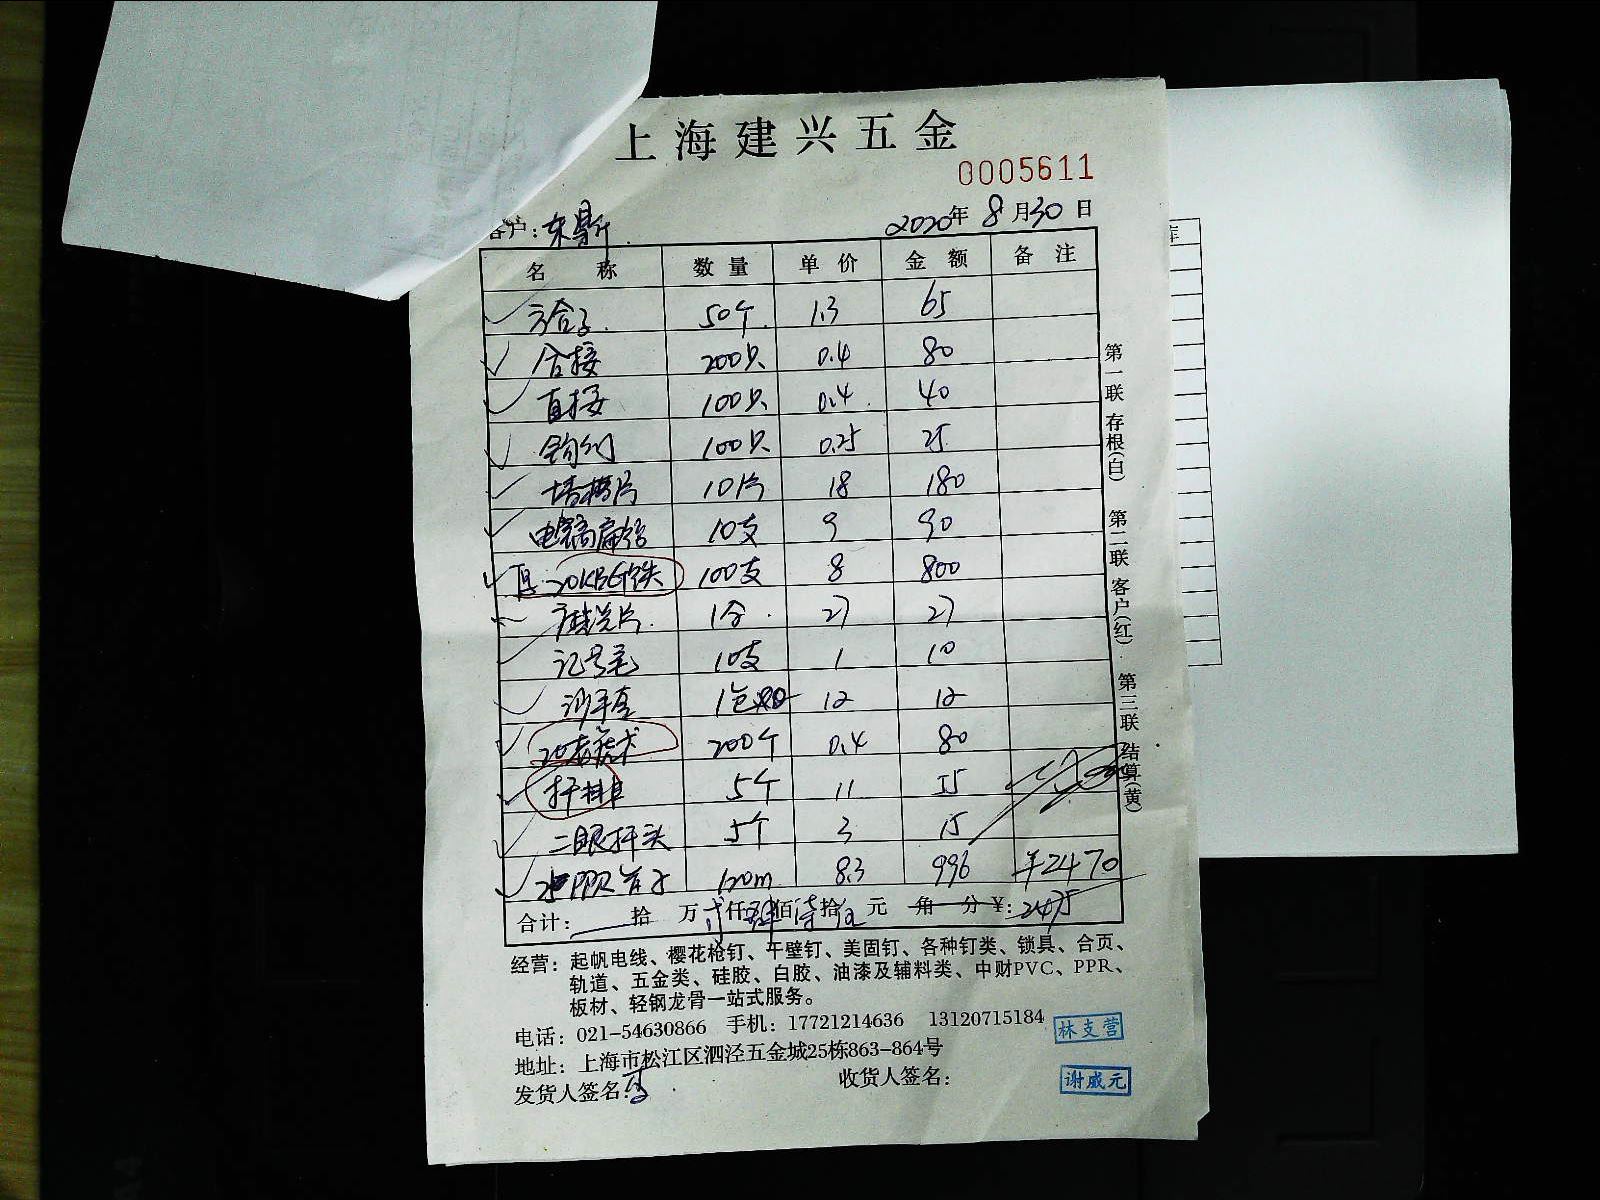 上海建兴五金
0005611
客户:东昇 2020年8月30日
名称 数量 单价 金额 备注
方合子 50个 1.3 65
合接 200只 0.4 80
直接 100只 0.4 40
100只 0.25 25
10片 18 180
电镐扁 10支 9 90
100支 8 800
1合 27 27
记号毛 10支 1 10
沙手套 1包 12 12
200个 0.4 80
5个 11 55
二眼开头 5个 3 15
120m 8.3 996 ¥2470
合计: 拾 万 贰仟肆佰 拾 元 角 分 ¥:2475
经营:起帆电线、樱花枪钉、干壁钉、美固钉、各种钉类、锁具、合页、
轨道、五金类、硅胶、白胶、油漆及辅料类、中财PVC、PPR、
板材、轻钢龙骨一站式服务。
电话:021-54630866 手机:17721214636 13120715184
林支营
地址:上海市松江区泗泾五金城25栋863-864号
发货人签名: 收货人签名:
谢威元
第一联 存根(白) 第二联 客户(红) 第三联 结算(黄)
库